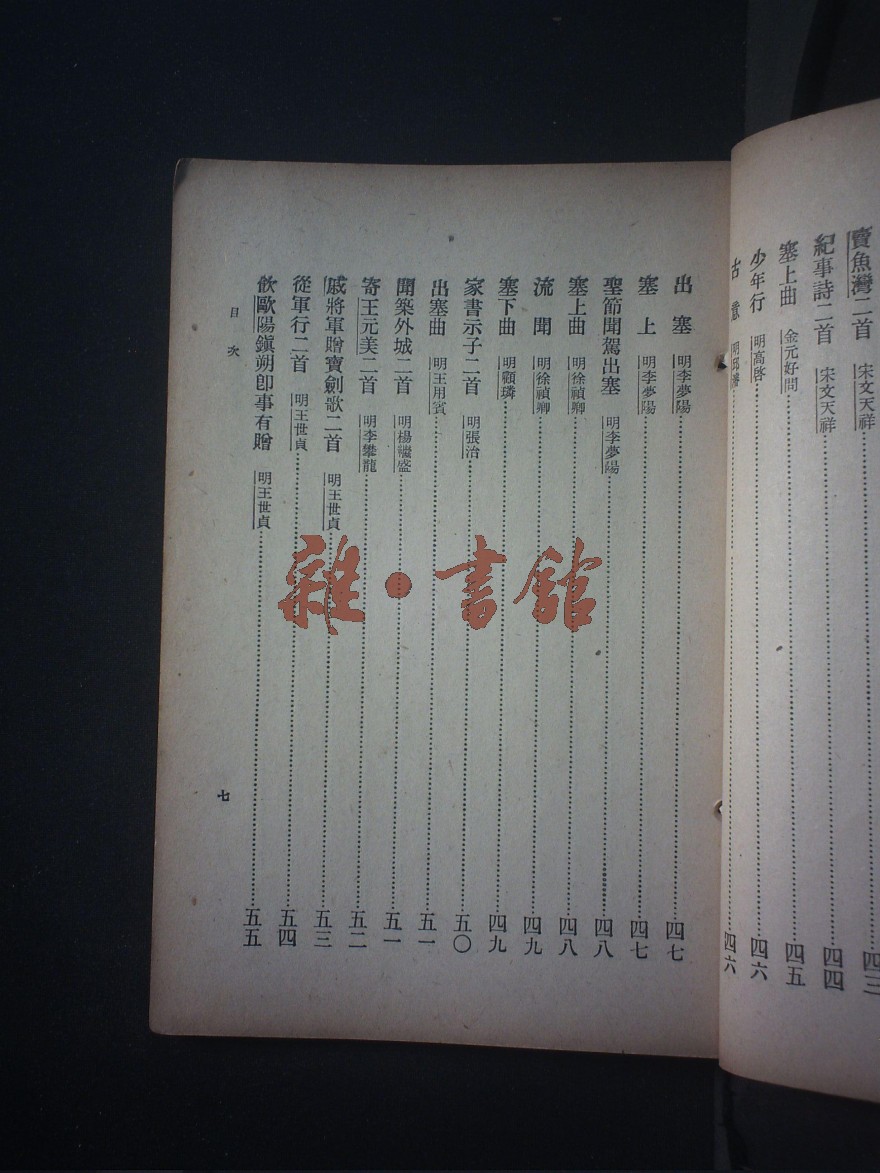 賣魚灣二首 宋文天祥 四三
紀事詩二首 宋文天祥 四四
塞上曲 金元好問 四五
少年行 明高啓 四六
古意 四六
出塞 明李夢陽 四七
塞上 明李夢陽 四七
聖節聞駕出塞 明李夢陽 四八
塞上曲 明徐禎卿 四八
流聞 明徐禎卿 四九
塞下曲 明顧璘 四九
家書示子二首 明張治 五〇
出塞曲 明王用賓 五一
聞築外城二首 明楊繼盛 五一
寄王元美二首 明李攀龍 五二
戚將軍贈寶劍歌二首 明王世貞 五三
從軍行二首 明王世貞 五四
飲歐陽鎭朔卽事有贈 明王世貞 五五
目次
七
雜·書館